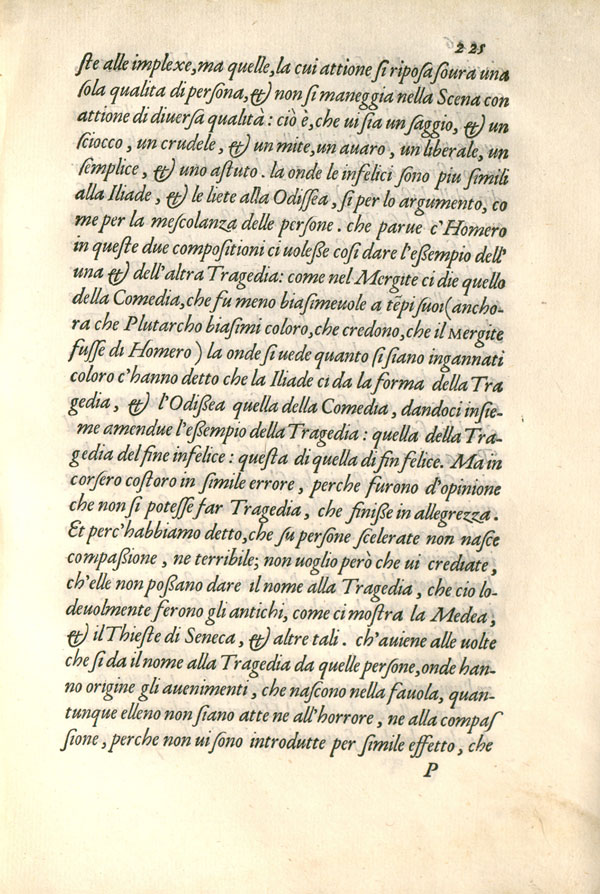 225
ste alle implexe, ma quelle, la cui attione si riposa soura una
sola qualita di persona, & non si maneggia nella Scena con
attione di diversa qualità: ciò è, che ui sia un saggio, & un
sciocco, un crudele, & un mite, un auaro, un liberale, un
semplice, & uno astuto. la onde le infelici sono piu simili
alla Iliade, & le liete alla Odissea, si per lo argumento, co
me per la mescolanza delle persone. che parue c'Homero
in queste due compositioni ci uolesse cosi dare l'essempio dell'
una & dell'altra Tragedia: come nel Mergite ci die quello
della Comedia, che fu meno biasimeuole a tẽpi suoi (ancho-
ra che Plutarcho biasimi coloro, che credono, che il Mergite
fusse di Homero) la onde si uede quanto si siano ingannati
coloro c'hanno detto che la Iliade ci da la forma della Tra
gedia, & l'Odissea quella della Comedia, dandoci insie-
me amendue l'essempio della Tragedia: quella della Tra-
gedia del fine infelice: questa di quella di fin felice. Ma in
corsero costoro in simile errore, perche furono d'opinione
che non si potesse far Tragedia, che finisse in allegrezza.
Et perc'habbiamo detto, che su persone scelerate non nasce
compassione, ne terribile; non uoglio però che ui crediate,
ch'elle non possano dare il nome alla Tragedia, che cio lo-
deuolmente ferono gli antichi, come ci mostra la Medea,
& il Thieste di Seneca, & altre tali. ch'auiene alle uolte
che si da il nome alla Tragedia da quelle persone, onde han-
no origine gli auenimenti, che nascono nella fauola, quan-
tunque elleno non siano atte ne all'horrore, ne alla compas
sione, perche non ui sono introdutte per simile effetto, che
P